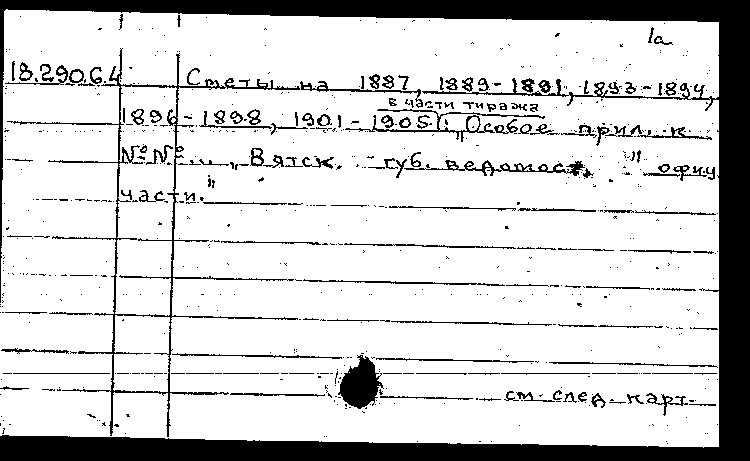 1а
18.290.6.4 Сметы на 1887, 1889-1891, 1893-1894,
в части тиража
1896-1898, 1901-1905: „Особое прил. к
№№... „Вятск. губ. ведомост." офиц.
части."
см. след. карт.